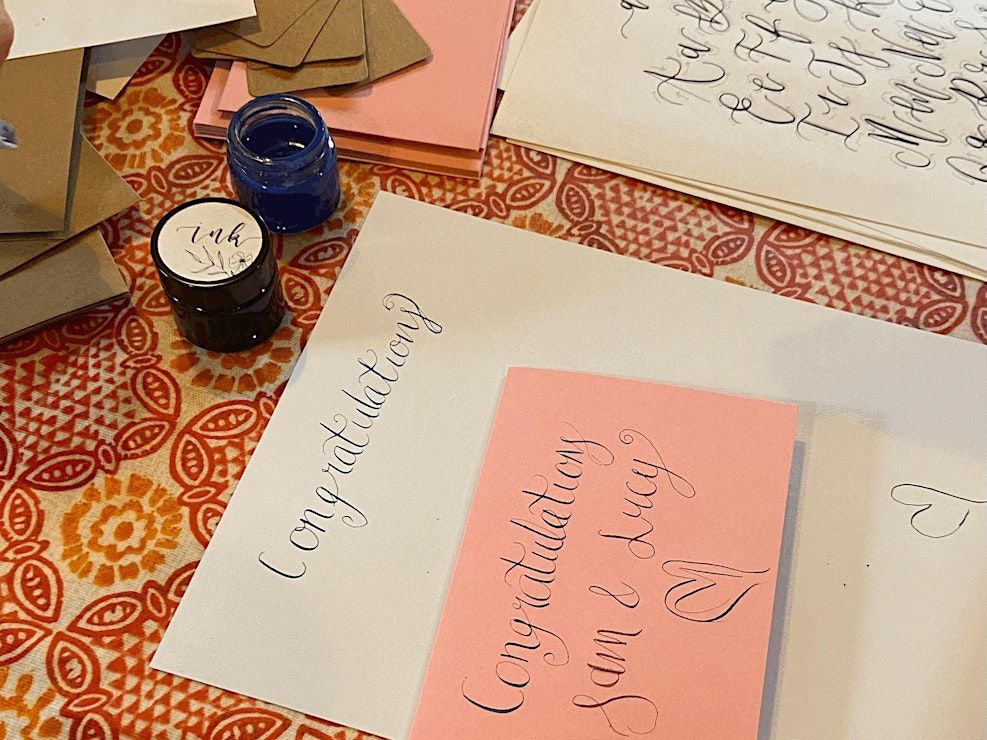 ink
Congratulations
Congratulations
Sam & Lucy
Aa
Ee Ff
Ii Jj
Mm Nn